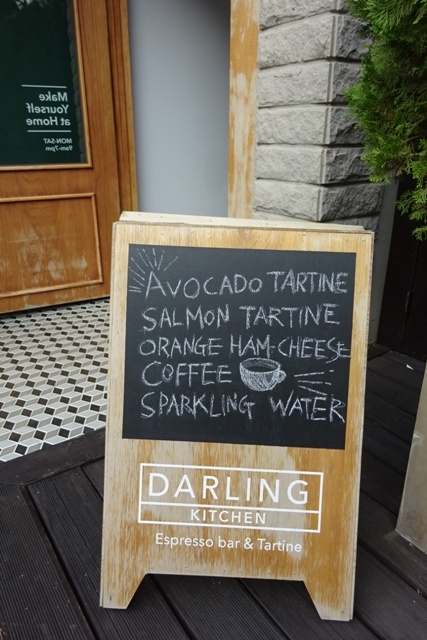 Make
Yourself
at Home
MON-SAT
9am-7pm
AVOCADO TARTINE
SALMON TARTINE
ORANGE HAM-CHEESE
COFFEE
SPARKLING WATER
DARLING
KITCHEN
Espresso bar & Tartine